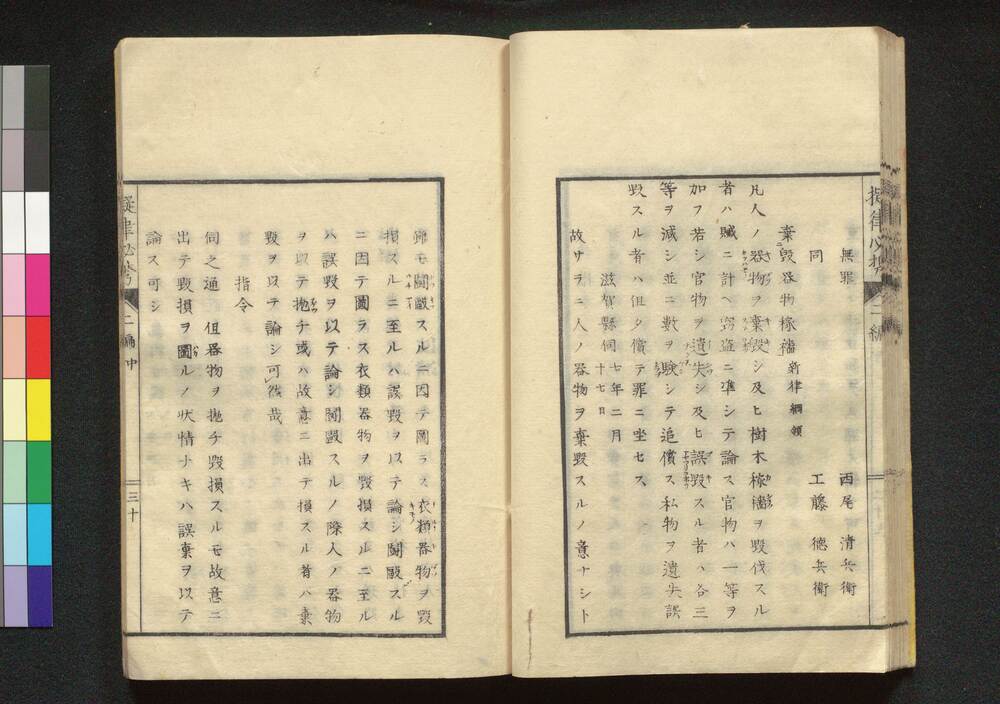 無罪 西尾清兵衛
同 工藤德兵衛
棄毀器物稼穡 新律綱領
凡人ノ器物ヲ棄毀シ及ヒ樹木稼穡ヲ毀伐スル
者ハ贓ニ計ヘ窃盗ニ準シテ論ス官物ハ一等ヲ
加フ若シ官物ヲ遺失シ及ヒ誤毀スル者ハ各三
等ヲ減シ並ニ數ヲ驗シテ追償ス私物ヲ遺失誤
毀スル者ハ但タ償テ罪ニ坐セス
滋賀縣伺 七年二月十七日
故サラニ人ノ器物ヲ棄毀スルノ意ナシト
擬律必携 二編
雖モ鬪毆スルニ因テ圖ラス衣類器物ヲ毀
損スルニ至ルハ誤毀ヲ以テ論シ鬪毆スル
ニ因テ圖ラス衣類器物ヲ毀損スルニ至ル
ハ誤毀ヲ以テ論シ鬪毆スルノ際人ノ器物
ヲ以テ抛チ或ハ故意ニ出テ損スル者ハ棄
毀ヲ以テ論シ可然哉
指令
伺之通 但器物ヲ抛チ毀損スルモ故意ニ
出テ毀損ヲ圖ルノ狀情ナキハ誤棄ヲ以テ
論ス可シ
擬律必携 二編中 三十